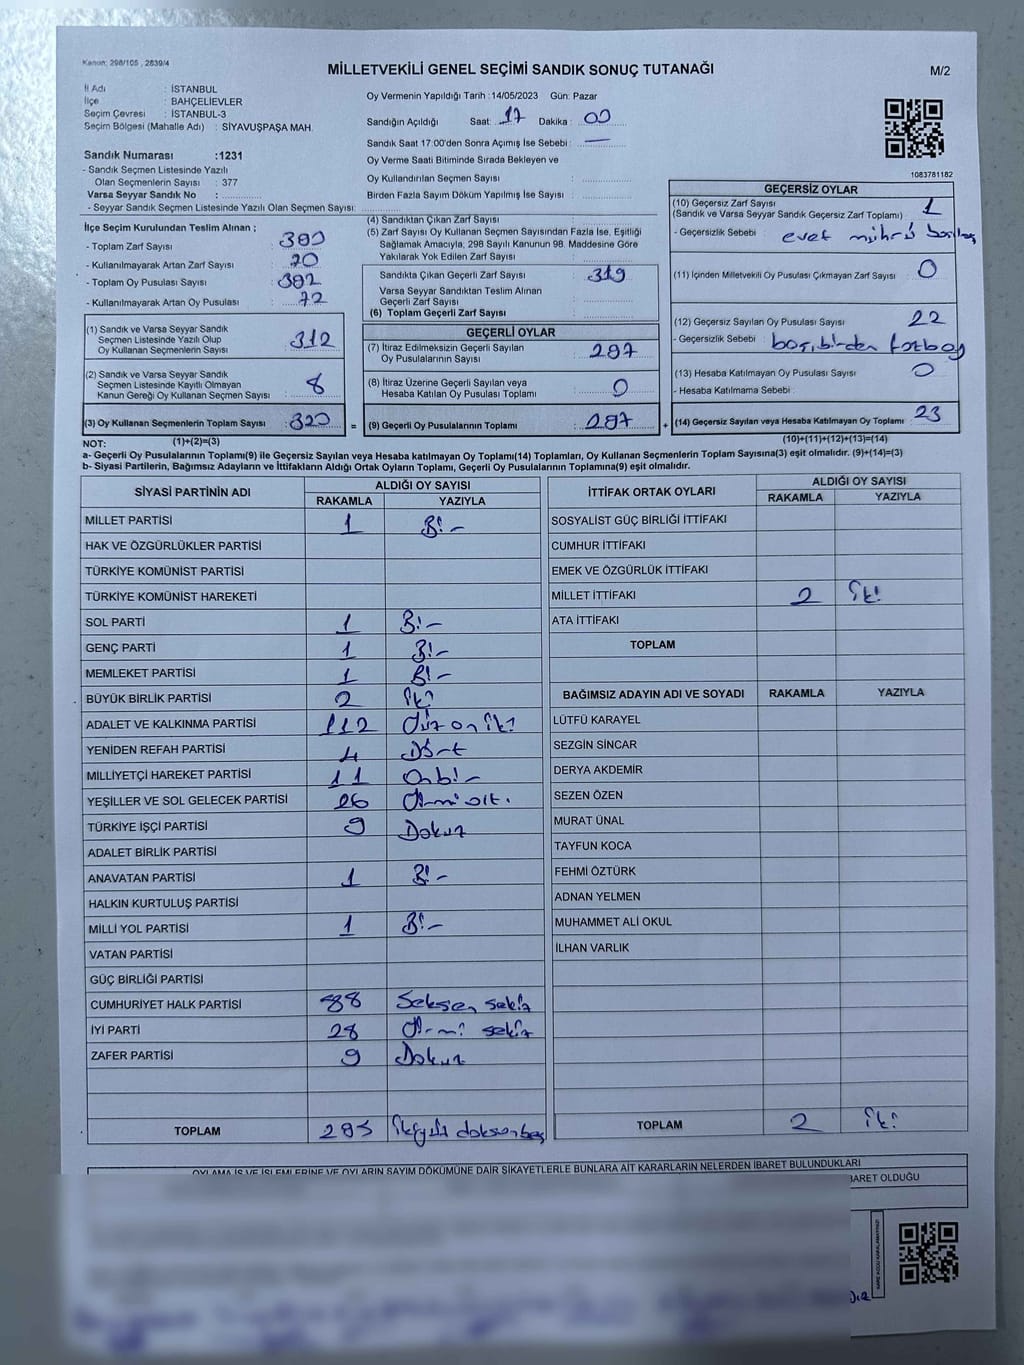 Kanun: 298/105 , 2839/4
MİLLETVEKİLİ GENEL SEÇİMİ SANDIK SONUÇ TUTANAĞI
M/2
İl Adı : İSTANBUL
İlçe : BAHÇELİEVLER
Seçim Çevresi : İSTANBUL-3
Seçim Bölgesi (Mahalle Adı) : SİYAVUŞPAŞA MAH.
Sandık Numarası :1231
- Sandık Seçmen Listesinde Yazılı
Olan Seçmenlerin Sayısı : 377
Varsa Seyyar Sandık No :
- Seyyar Sandık Seçmen Listesinde Yazılı Olan Seçmen Sayısı:
Oy Vermenin Yapıldığı Tarih :14/05/2023 Gün: Pazar
Sandığın Açıldığı Saat: 17 Dakika : 00
Sandık Saat 17:00'den Sonra Açımış İse Sebebi : —
Oy Verme Saati Bitiminde Sırada Bekleyen ve
Oy Kullandırılan Seçmen Sayısı :
Birden Fazla Sayım Döküm Yapılmış İse Sayısı :
1083781182
İlçe Seçim Kurulundan Teslim Alınan ;
- Toplam Zarf Sayısı :
- Kullanılmayarak Artan Zarf Sayısı :
- Toplam Oy Pusulası Sayısı : 392
- Kullanılmayarak Artan Oy Pusulası : 72
(1) Sandık ve Varsa Seyyar Sandık
Seçmen Listesinde Yazılı Olup
Oy Kullanan Seçmenlerin Sayısı : 312
(2) Sandık ve Varsa Seyyar Sandık
Seçmen Listesinde Kayıtlı Olmayan
Kanun Gereği Oy Kullanan Seçmen Sayısı : 8
(3) Oy Kullanan Seçmenlerin Toplam Sayısı : 320 =
(1)+(2)=(3)
(4) Sandıktan Çıkan Zarf Sayısı :
(5) Zarf Sayısı Oy Kullanan Seçmen Sayısından Fazla İse, Eşitliği
Sağlamak Amacıyla, 298 Sayılı Kanunun 98. Maddesine Göre
Yakılarak Yok Edilen Zarf Sayısı :
Sandıkta Çıkan Geçerli Zarf Sayısı : 319
Varsa Seyyar Sandıktan Teslim Alınan
Geçerli Zarf Sayısı :
(6) Toplam Geçerli Zarf Sayısı :
GEÇERLİ OYLAR
(7) İtiraz Edilmeksizin Geçerli Sayılan
Oy Pusulalarının Sayısı : 297
(8) İtiraz Üzerine Geçerli Sayılan veya
Hesaba Katılan Oy Pusulası Toplamı : 0
(9) Geçerli Oy Pusulalarının Toplamı : 297 +
GEÇERSİZ OYLAR
(10) Geçersiz Zarf Sayısı
(Sandık ve Varsa Seyyar Sandık Geçersiz Zarf Toplamı) : 1
- Geçersizlik Sebebi : evet mührü
(11) İçinden Milletvekili Oy Pusulası Çıkmayan Zarf Sayısı : 0
(12) Geçersiz Sayılan Oy Pusulası Sayısı : 22
- Geçersizlik Sebebi : boş, birden
(13) Hesaba Katılmayan Oy Pusulası Sayısı : 0
- Hesaba Katılmama Sebebi :
(14) Geçersiz Sayılan veya Hesaba Katılmayan Oy Toplamı : 23
(10)+(11)+(12)+(13)=(14)
NOT:
a- Geçerli Oy Pusulalarının Toplamı(9) ile Geçersiz Sayılan veya Hesaba katılmayan Oy Toplamı(14) Toplamları, Oy Kullanan Seçmenlerin Toplam Sayısına(3) eşit olmalıdır. (9)+(14)=(3)
b- Siyasi Partilerin, Bağımsız Adayların ve İttifakların Aldığı Ortak Oyların Toplamı, Geçerli Oy Pusulalarının Toplamına(9) eşit olmalıdır.
SİYASİ PARTİNİN ADI ALDIĞI OY SAYISI
RAKAMLA YAZIYLA
MİLLET PARTİSİ 1 Bir
HAK VE ÖZGÜRLÜKLER PARTİSİ
TÜRKİYE KOMÜNİST PARTİSİ
TÜRKİYE KOMÜNİST HAREKETİ
SOL PARTİ 1 Bir
GENÇ PARTİ 1 Bir
MEMLEKET PARTİSİ 1 Bir
BÜYÜK BİRLİK PARTİSİ 2 İki
ADALET VE KALKINMA PARTİSİ 112 Yüz on iki
YENİDEN REFAH PARTİSİ 4 Dört
MİLLİYETÇİ HAREKET PARTİSİ 11 Onbir
YEŞİLLER VE SOL GELECEK PARTİSİ 26 Yirmi altı
TÜRKİYE İŞÇİ PARTİSİ 9 Dokuz
ADALET BİRLİK PARTİSİ
ANAVATAN PARTİSİ 1 Bir
HALKIN KURTULUŞ PARTİSİ
MİLLİ YOL PARTİSİ 1 Bir
VATAN PARTİSİ
GÜÇ BİRLİĞİ PARTİSİ
CUMHURİYET HALK PARTİSİ 88 Seksen sekiz
İYİ PARTİ 28 Yirmi sekiz
ZAFER PARTİSİ 9 Dokuz
TOPLAM 295 İkiyüz doksanbeş
İTTİFAK ORTAK OYLARI ALDIĞI OY SAYISI
RAKAMLA YAZIYLA
SOSYALİST GÜÇ BİRLİĞİ İTTİFAKI
CUMHUR İTTİFAKI
EMEK VE ÖZGÜRLÜK İTTİFAKI
MİLLET İTTİFAKI 2 İki
ATA İTTİFAKI
TOPLAM
BAĞIMSIZ ADAYIN ADI VE SOYADI RAKAMLA YAZIYLA
LÜTFÜ KARAYEL
SEZGİN SİNCAR
DERYA AKDEMİR
SEZEN ÖZEN
MURAT ÜNAL
TAYFUN KOCA
FEHMİ ÖZTÜRK
ADNAN YELMEN
MUHAMMET ALİ OKUL
İLHAN VARLIK
TOPLAM 2 İki
OYLAMA İŞ VE İŞLEMLERİNE VE OYLARIN SAYIM DÖKÜMÜNE DAİR ŞİKAYETLERLE BUNLARA AİT KARARLARIN NELERDEN İBARET BULUNDUKLARI
BARET OLDUĞU